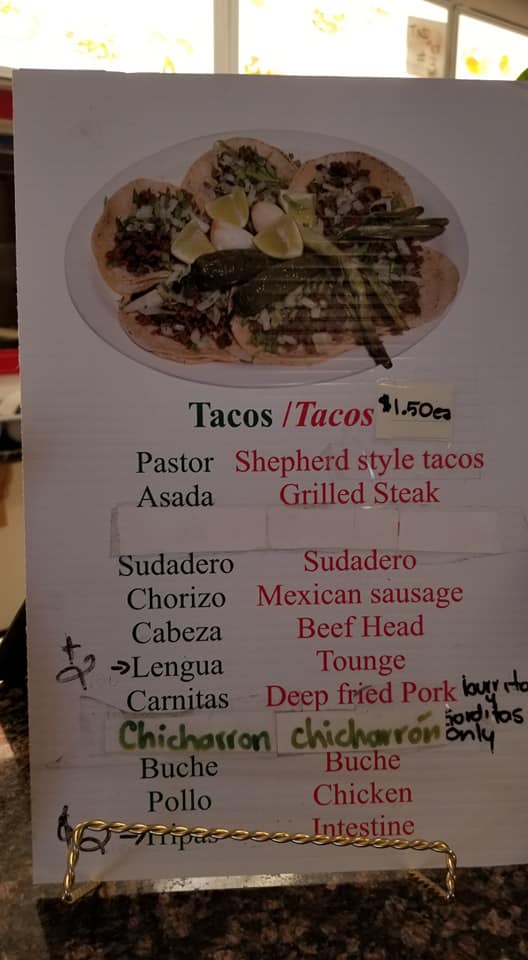 Tacos /Tacos $1.50ea
Pastor Shepherd style tacos
Asada Grilled Steak
Sudadero Sudadero
Chorizo Mexican sausage
Cabeza Beef Head
$2 →Lengua Tounge
Carnitas Deep fried Pork
Chicharron chicharrón burrito
gorditos
only
Buche Buche
Pollo Chicken
$2 →Tripas Intestine